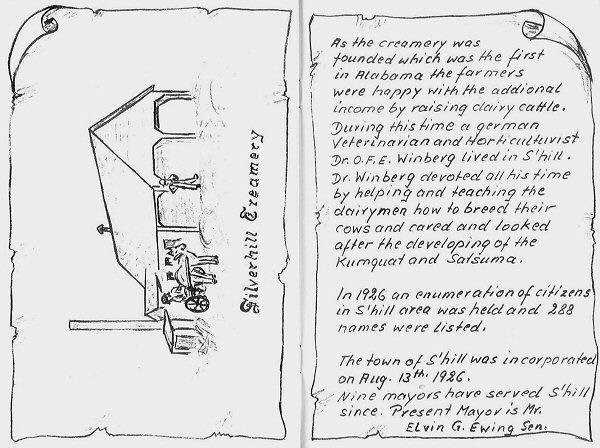 Silverhill Creamery
As the creamery was
founded which was the first
in Alabama the farmers
were happy with the addional
income by raising dairy cattle.
During this time a german
Veterinarian and Horticulturvist
Dr. O.F.E. Winberg lived in S'hill.
Dr. Winberg devoted all his time
by helping and teaching the
dairymen how to breed their
cows and cared and looked
after the developing of the
Kumquat and Satsuma.
In 1926 an enumeration of citizens
in S'hill area was held and 288
names were listed.
The town of S'hill was incorporated
on Aug. 13th. 1926.
Nine mayors have served S'hill
since. Present Mayor is Mr.
Elvin G. Ewing Sen.